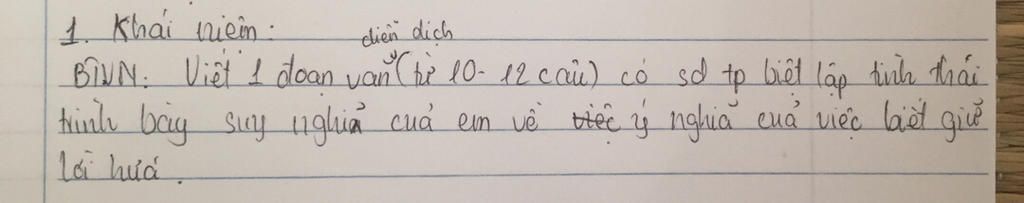 1. Khái niệm:
diễn dịch
BTVN: Viết 1 đoạn văn (từ 10-12 câu) có sd tp biệt lập tình thái
trình bày suy nghĩa của em về việc ý nghĩa của việc biết giữ
lời hứa.